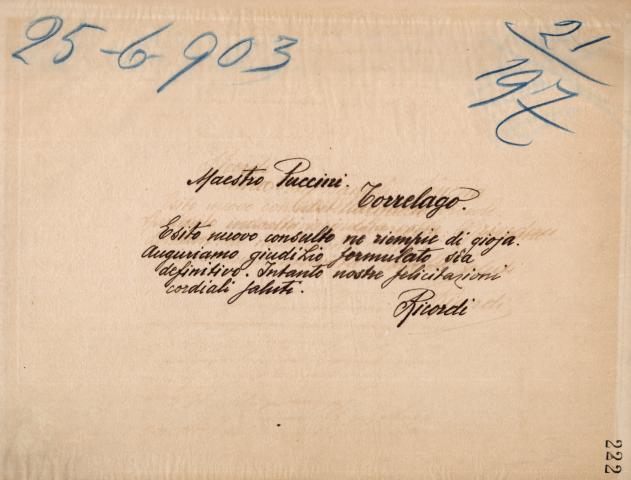 25-6-903
21/197
Maestro Puccini.
Torrelago.
Esito nuovo consulto ne riempie di gioja.
Auguriamo giudizio formulato sia
definitivo. Intanto nostre felicitazioni
cordiali saluti.
Ricordi
222